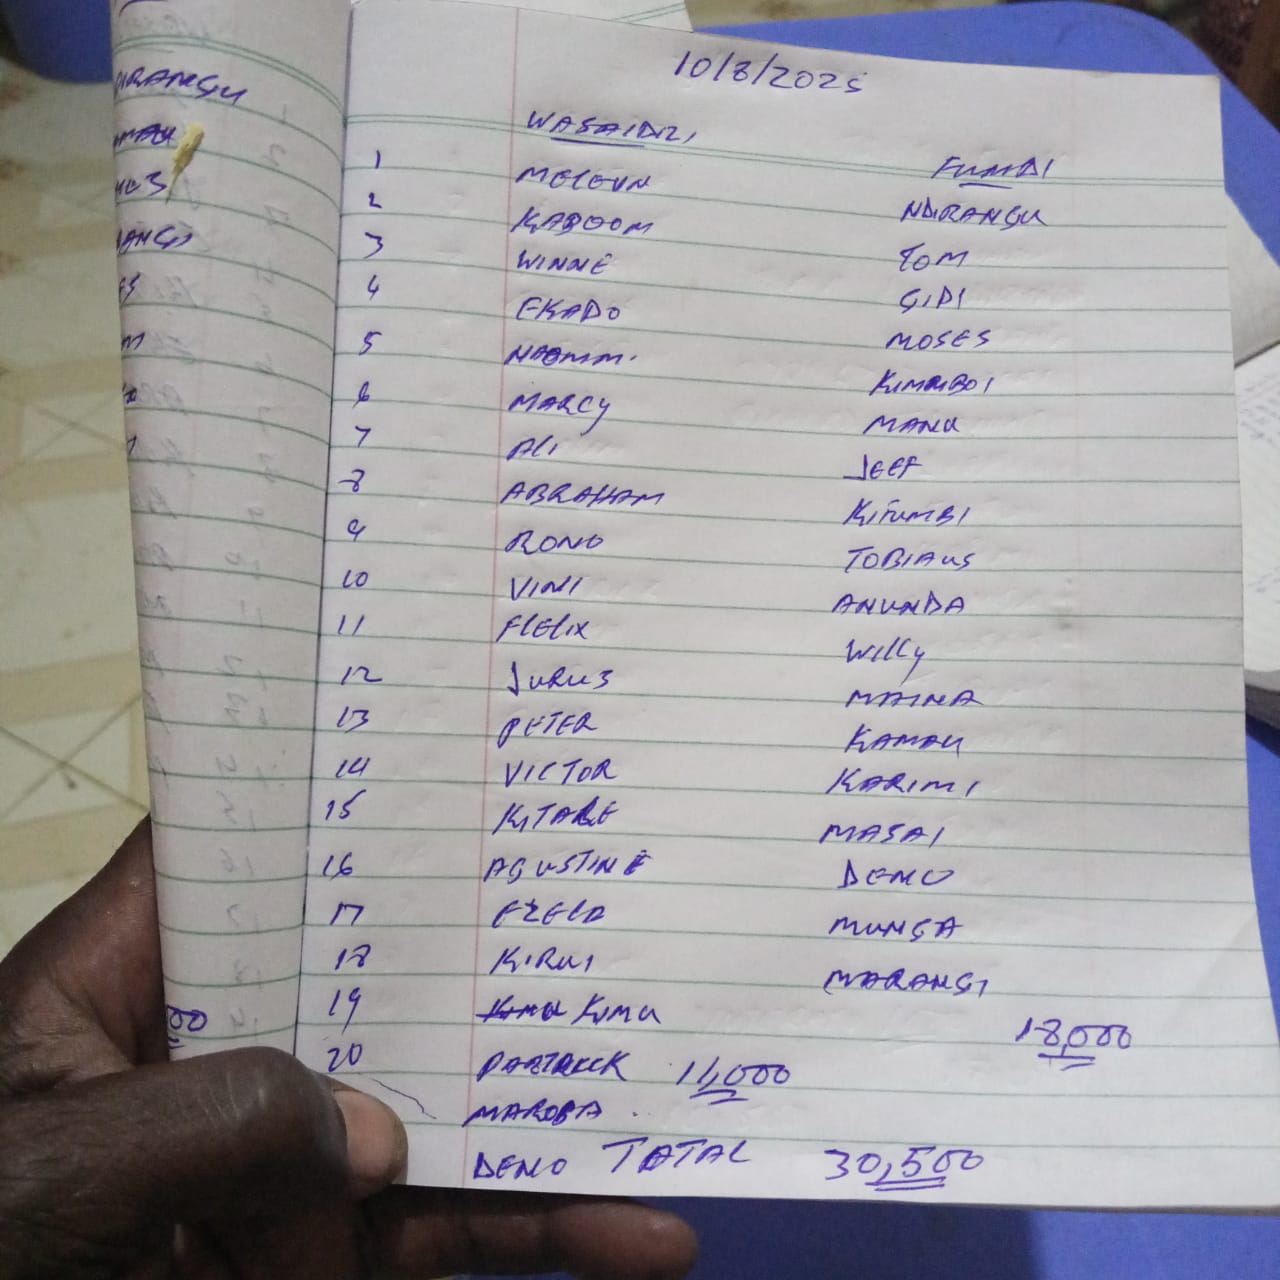 10/8/2025
WASAIDIZI
FUNDI
1 MELEVN NDIRANGU
2 KABOOM TOM
3 WINNE GIDI
4 EKADO MOSES
5 NAOMMI KIMANBOI
6 MARCY MANU
7 ALI JEEF
8 ABRAHAM KITUMBI
9 RONO TOBIAUS
10 VINI ANUNDA
11 FLELIX WILLY
12 JURUS MAINA
13 PETER KAMAU
14 VICTOR KARIMI
15 KITARE MASAI
16 AGUSTINE DENO
17 EZELA MUNGA
18 KIRUI MARANGI
19 KIMU 18,000
20 PARTRICK 11,000
MAROBA
DENO TOTAL 30,500